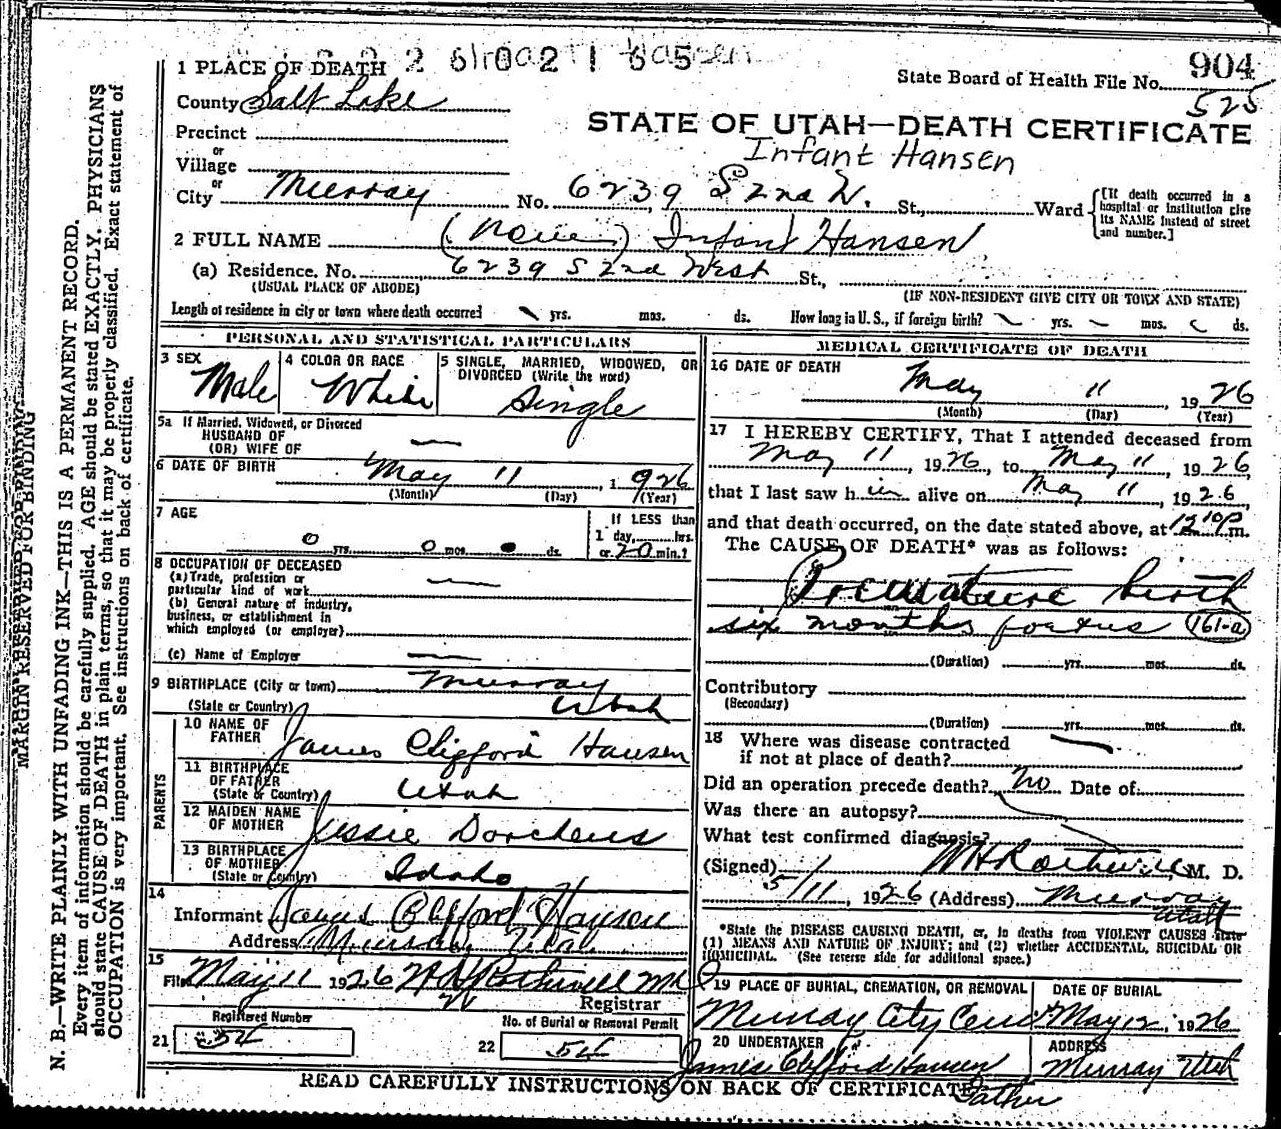 MARGIN RESERVED FOR BINDING
N. B.—WRITE PLAINLY WITH UNFADING INK—THIS IS A PERMANENT RECORD.
Every item of information should be carefully supplied. AGE should be stated EXACTLY. PHYSICIANS
should state CAUSE OF DEATH in plain terms, so that it may be properly classified. Exact statement of
OCCUPATION is very important. See instructions on back of certificate.
1 PLACE OF DEATH
State Board of Health File No. 904
525
County Salt Lake
STATE OF UTAH—DEATH CERTIFICATE
Precinct
Infant Hansen
or
Village
or
City Murray No. 6239 S 2nd W. St., Ward
[If death occurred in a
hospital or institution give
its NAME instead of street
and number.]
2 FULL NAME (None) Infant Hansen
(a) Residence. No. 6239 S 2nd West St.,
(USUAL PLACE OF ABODE) (IF NON-RESIDENT GIVE CITY OR TOWN AND STATE)
Length of residence in city or town where death occurred yrs. mos. ds. How long in U. S., if foreign birth? yrs. mos. ds.
PERSONAL AND STATISTICAL PARTICULARS
3 SEX Male
4 COLOR OR RACE White
5 SINGLE, MARRIED, WIDOWED, OR
DIVORCED (Write the word)
Single
5a If Married, Widowed, or Divorced
HUSBAND OF
(OR) WIFE OF —
6 DATE OF BIRTH May 11, 1926
(Month) (Day) (Year)
7 AGE
0 yrs. 0 mos. 0 ds.
If LESS than
1 day, hrs.
or 20 min.?
8 OCCUPATION OF DECEASED
(a) Trade, profession or
particular kind of work —
(b) General nature of industry,
business, or establishment in
which employed (or employer)
(c) Name of Employer —
9 BIRTHPLACE (City or town) Murray
(State or Country) Utah
PARENTS
10 NAME OF
FATHER James Clifford Hansen
11 BIRTHPLACE
OF FATHER
(State or Country) Utah
12 MAIDEN NAME
OF MOTHER Jessie
13 BIRTHPLACE
OF MOTHER
(State or Country) Idaho
14
Informant James Clifford Hansen
Address Murray Utah
15
Filed May 11 1926
Registrar
Registered Number
21 54
No. of Burial or Removal Permit
22 54
MEDICAL CERTIFICATE OF DEATH
16 DATE OF DEATH
May 11, 1926
(Month) (Day) (Year)
17 I HEREBY CERTIFY, That I attended deceased from
May 11, 1926, to May 11, 1926,
that I last saw h im alive on May 11, 1926
and that death occurred, on the date stated above, at 12 10 P m.
The CAUSE OF DEATH* was as follows:
Premature birth
six months foetus 161-a
(Duration) yrs. mos. ds.
Contributory
(Secondary)
(Duration) yrs. mos. ds.
18 Where was disease contracted
if not at place of death? —
Did an operation precede death? no Date of
Was there an autopsy?
What test confirmed diagnosis?
(Signed) M. D.
5/11, 1926 (Address) Murray
Utah
*State the DISEASE CAUSING DEATH, or, in deaths from VIOLENT CAUSES state
(1) MEANS AND NATURE OF INJURY; and (2) whether ACCIDENTAL, SUICIDAL OR
HOMICIDAL. (See reverse side for additional space.)
19 PLACE OF BURIAL, CREMATION, OR REMOVAL
Murray City Cem
DATE OF BURIAL
May 12, 1926
20 UNDERTAKER
James Clifford Hansen
ADDRESS
Murray Utah
READ CAREFULLY INSTRUCTIONS ON BACK OF CERTIFICATE
Father